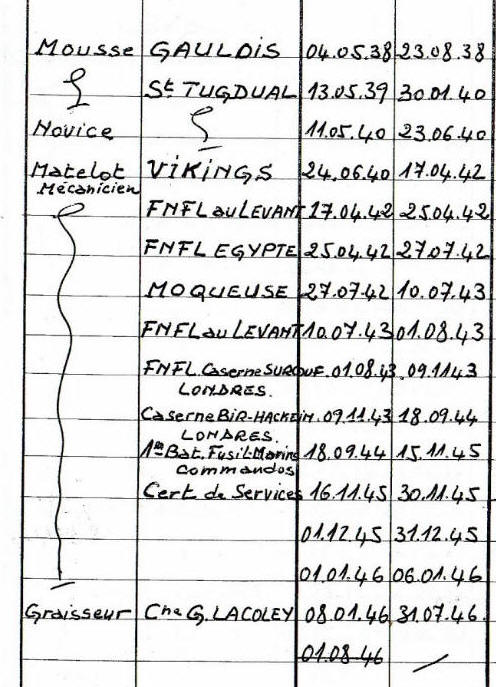 Mousse GAULOIS 04.05.38 23.08.38
St TUGDUAL 13.05.39 30.01.40
Novice 11.05.40 23.06.40
Matelot VIKINGS 24.06.40 17.04.42
Mécanicien
FNFL au LEVANT 17.04.42 25.04.42
FNFL EGYPTE 25.04.42 27.07.42
MOQUEUSE 27.07.42 10.07.43
FNFL au LEVANT 10.07.43 01.08.43
FNFL. Caserne SURCOUF. 01.08.43 09.11.43
LONDRES.
Caserne BIR-HACKEIM. 09.11.43 18.09.44
LONDRES.
1er Bat. Fusil-Marins 18.09.44 15.11.45
Commandos
Cert. de Services 16.11.45 30.11.45
01.12.45 31.12.45
01.01.46 06.01.46
Graisseur Cne G. LACOLEY 08.01.46 31.07.46.
01.08.46